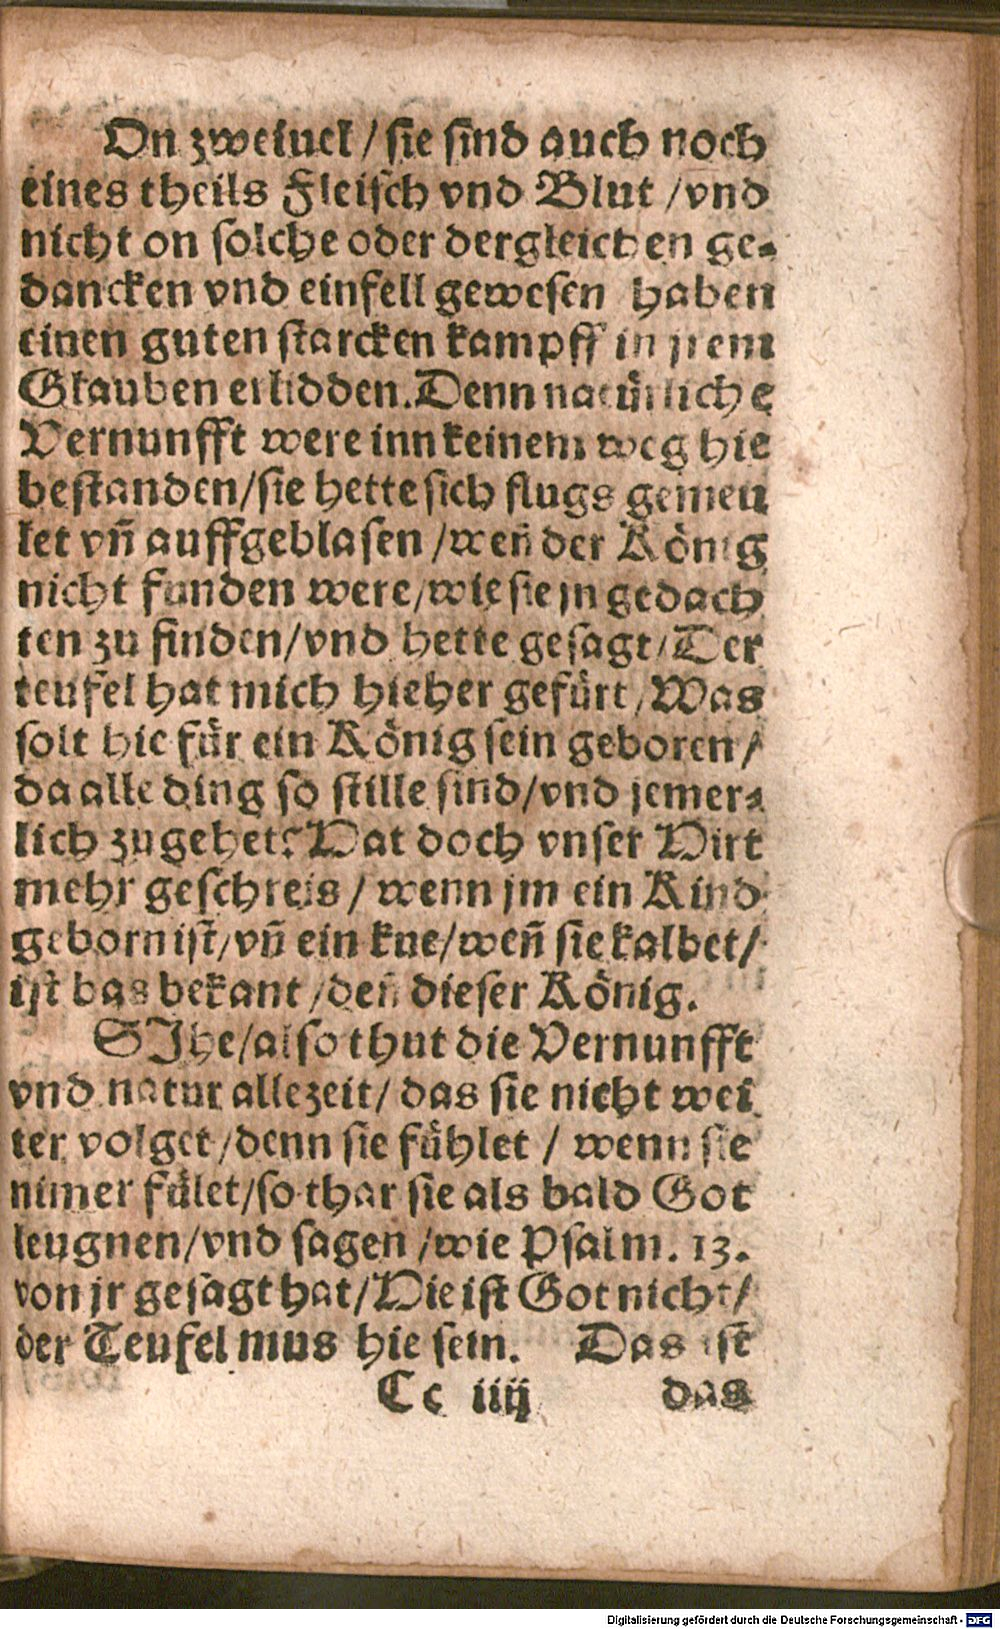 On zweiuel / sie sind auch noch
eines theils Fleisch vnd Blut / vnd
nicht on solche oder dergleichen ge-
dancken vnd einfell gewesen haben
einen guten starcken kampff in jrem
Glauben erlidden. Denn natürliche
Vernunfft were inn keinem weg hie
bestanden / sie hette sich flugs gemeu
let vñ auffgeblasen / weñ der König
nicht funden were / wie sie jn gedach
ten zu finden / vnd hette gesagt / Der
teufel hat mich hieher gefürt / Was
solt hie für ein König sein geboren /
da alle ding so stille sind / vnd jemer-
lich zugehet? Hat doch vnser Hirt
mehr geschreis / wenn jm ein Kind
geborn ist / vñ ein kue / weñ sie kalbet /
ist bas bekant / deñ dieser König.
SIhe / also thut die Vernunfft
vnd natur allezeit / das sie nicht wei
ter volget / denn sie fühlet / wenn sie
nimer fület / so thar sie als bald Got
leugnen / vnd sagen / wie Psalm. 13.
von jr gesagt hat / Hie ist Got nicht /
der Teufel mus hie sein. Das ist
Cc iiij das
Digitalisierung gefördert durch die Deutsche Forschungsgemeinschaft - DFG